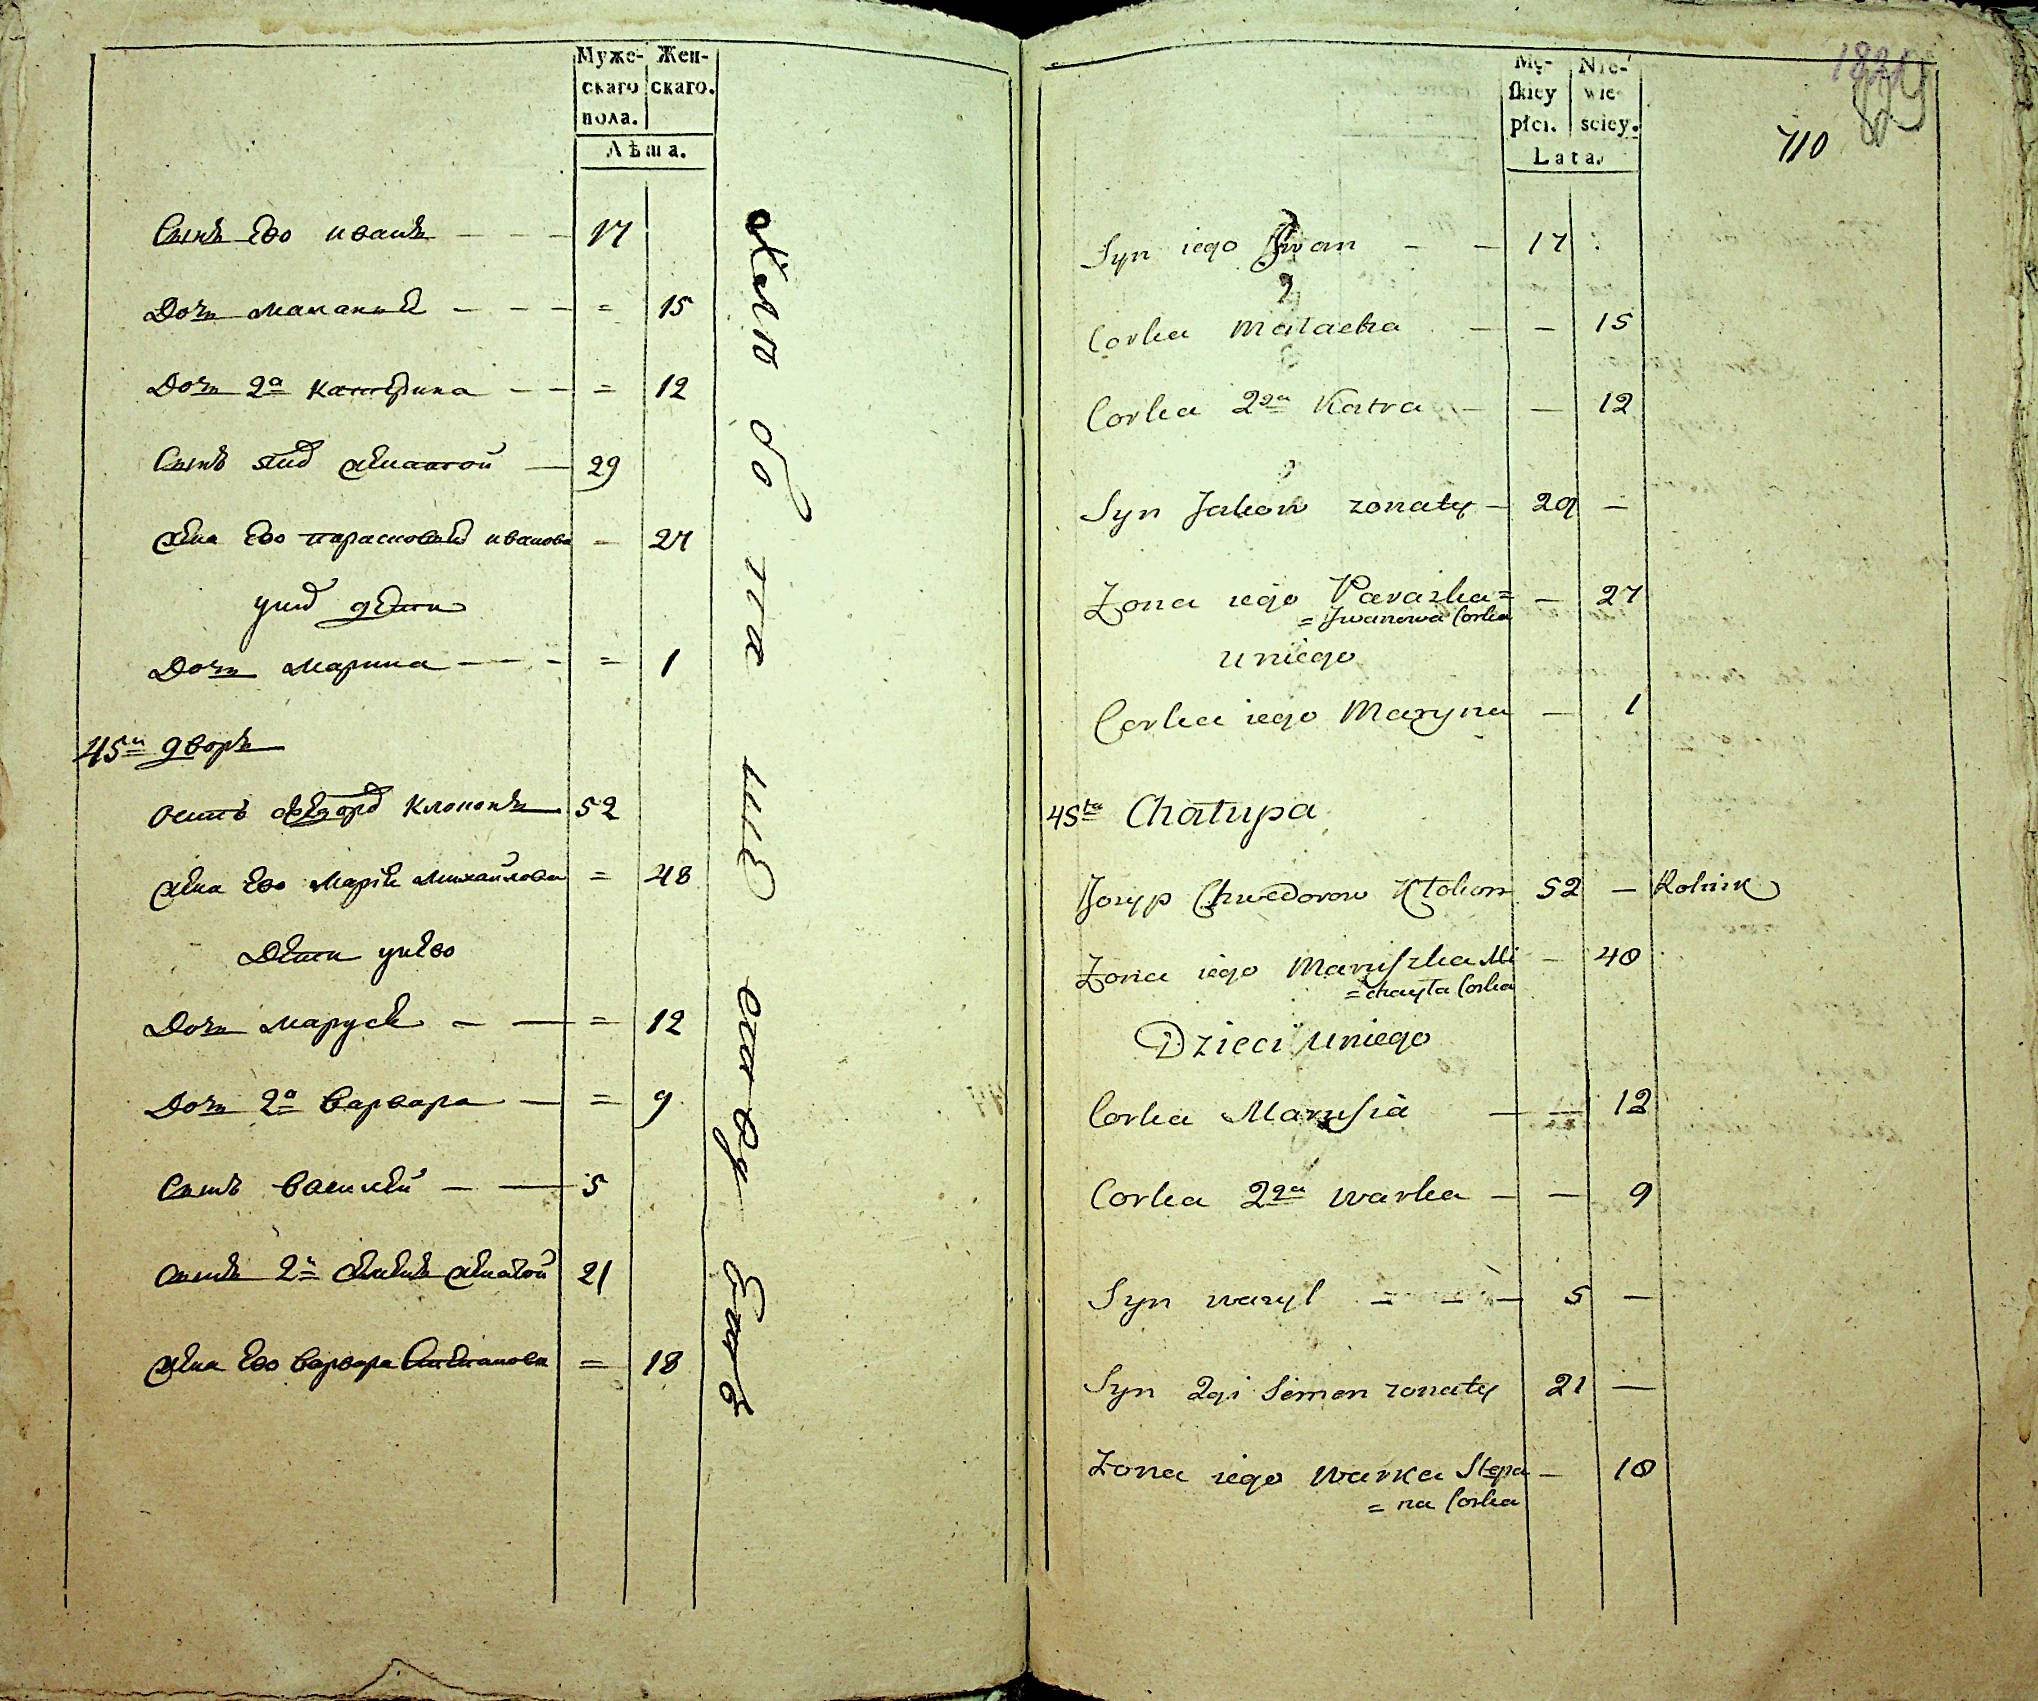 Муже-
скаго
пола.
Жен-
скаго.
Лѣта.
Сынъ Ево иванъ — — — 17
Дочь Маланья — — — = 15
Дочь 2я Катерина — — = 12
Сынъ женатой — 29
Жена Ево парасковья иванова — 27
дети
Дочь марина — — — = 1
45й дворъ
Осипъ Федоръ Клоконъ 52
Жена Ево Марія Михайлова = 48
Дети унево
Дочь маруся — — = 12
Дочь 2я варвара — = 9
Сынъ василей — — 5
Сынъ 2й женатой 21
Жена Ево варвара Степанова = 18
Mę-
skiey
płci.
Nie-
wie-
sciey.
Lata.
710
Syn iego Iwan — — 17
Corka Malaeka — — 15
Corka 2ga Katra — — 12
Syn Jakow zonaty — 29 —
Zona iego Paraska = — 27
= Iwanowa Corka
uniego
Corka iego Maryna — 1
45ta Chałupa
Jozyp Chwedorow Kłokon 52 — Rolnik
Zona iego Maryszka Mi — 48
= chayła Corka
Dzieci uniego
Corka Marusia — — 12
Corka 2ga warka — — 9
Syn wazyl — — — 5 —
Syn 2gi Semen zonaty 21 —
Zona iego warka Stepa — 18
= na Corka